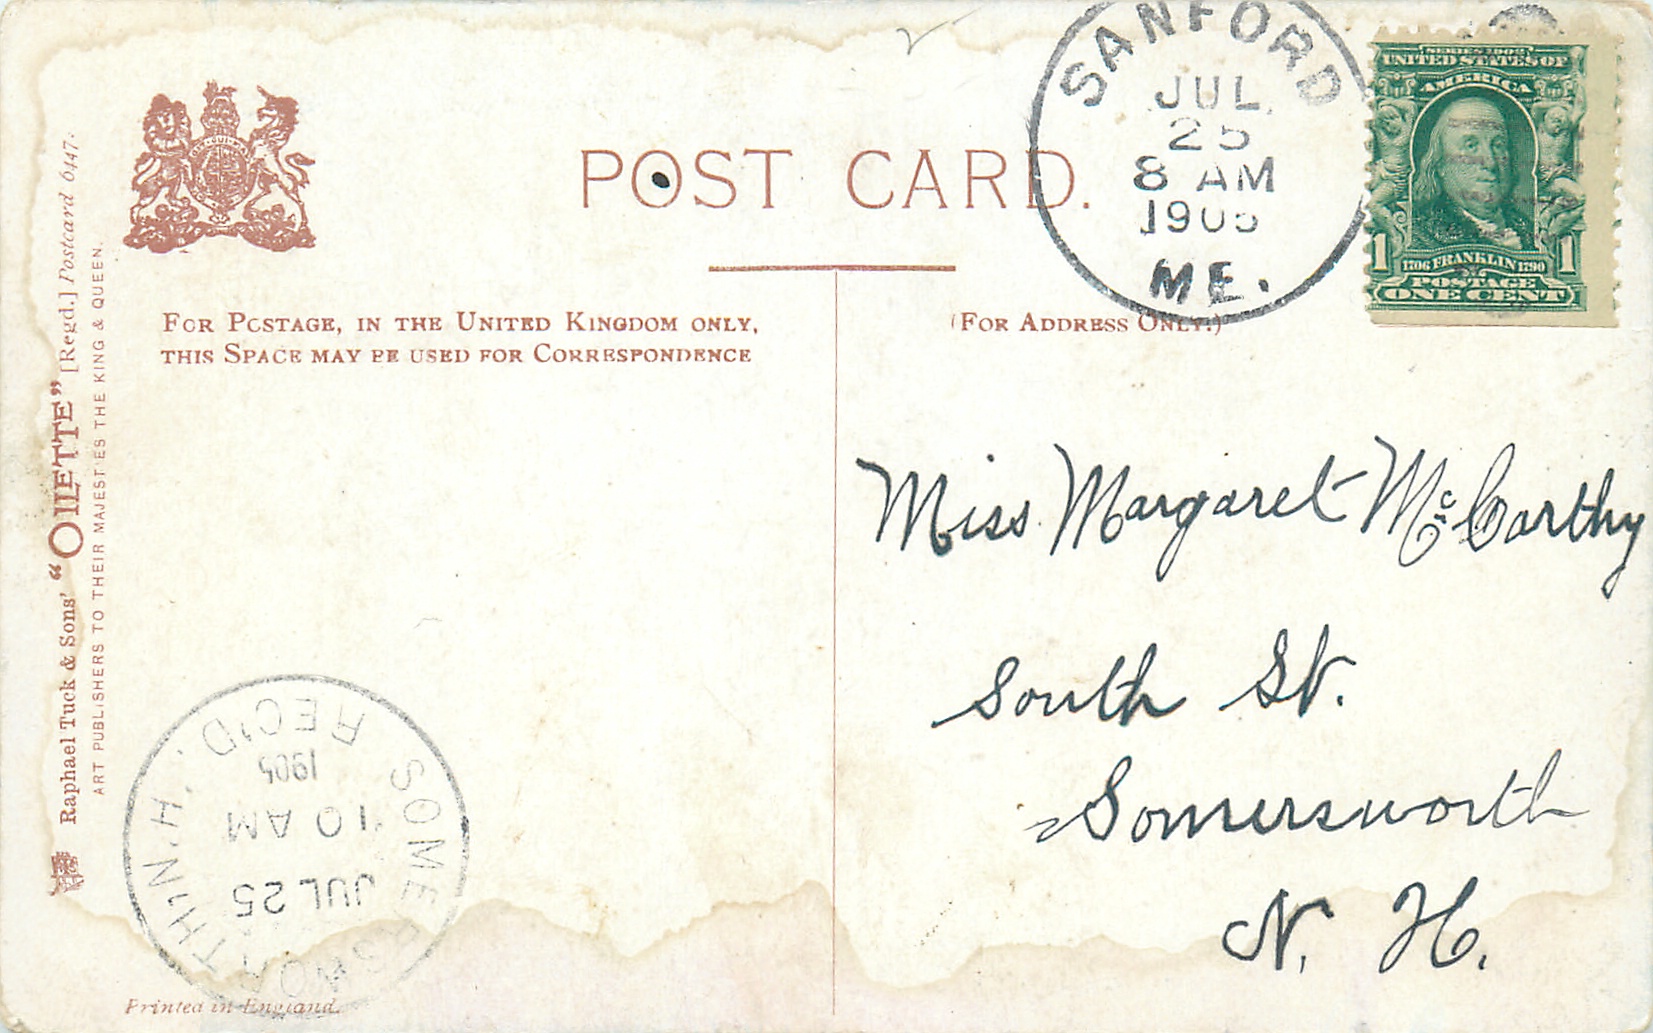 SANFORD
JUL
25
8 AM
1905
ME.
SERIES 1902
UNITED STATES OF
AMERICA
1 1
1706 FRANKLIN 1790
POSTAGE
ONE CENT
POST CARD.
FOR POSTAGE, IN THE UNITED KINGDOM ONLY,
THIS SPACE MAY BE USED FOR CORRESPONDENCE
(FOR ADDRESS ONLY.)
Raphael Tuck & Sons' "OILETTE" [Regd.] Postcard 6447.
ART PUBLISHERS TO THEIR MAJESTIES THE KING & QUEEN.
Miss Margaret McCarthy
South St.
Somersworth
N. H.
SOMERSWORTH, N.H.
JUL 25
10 AM
1905
REC'D.
Printed in England.